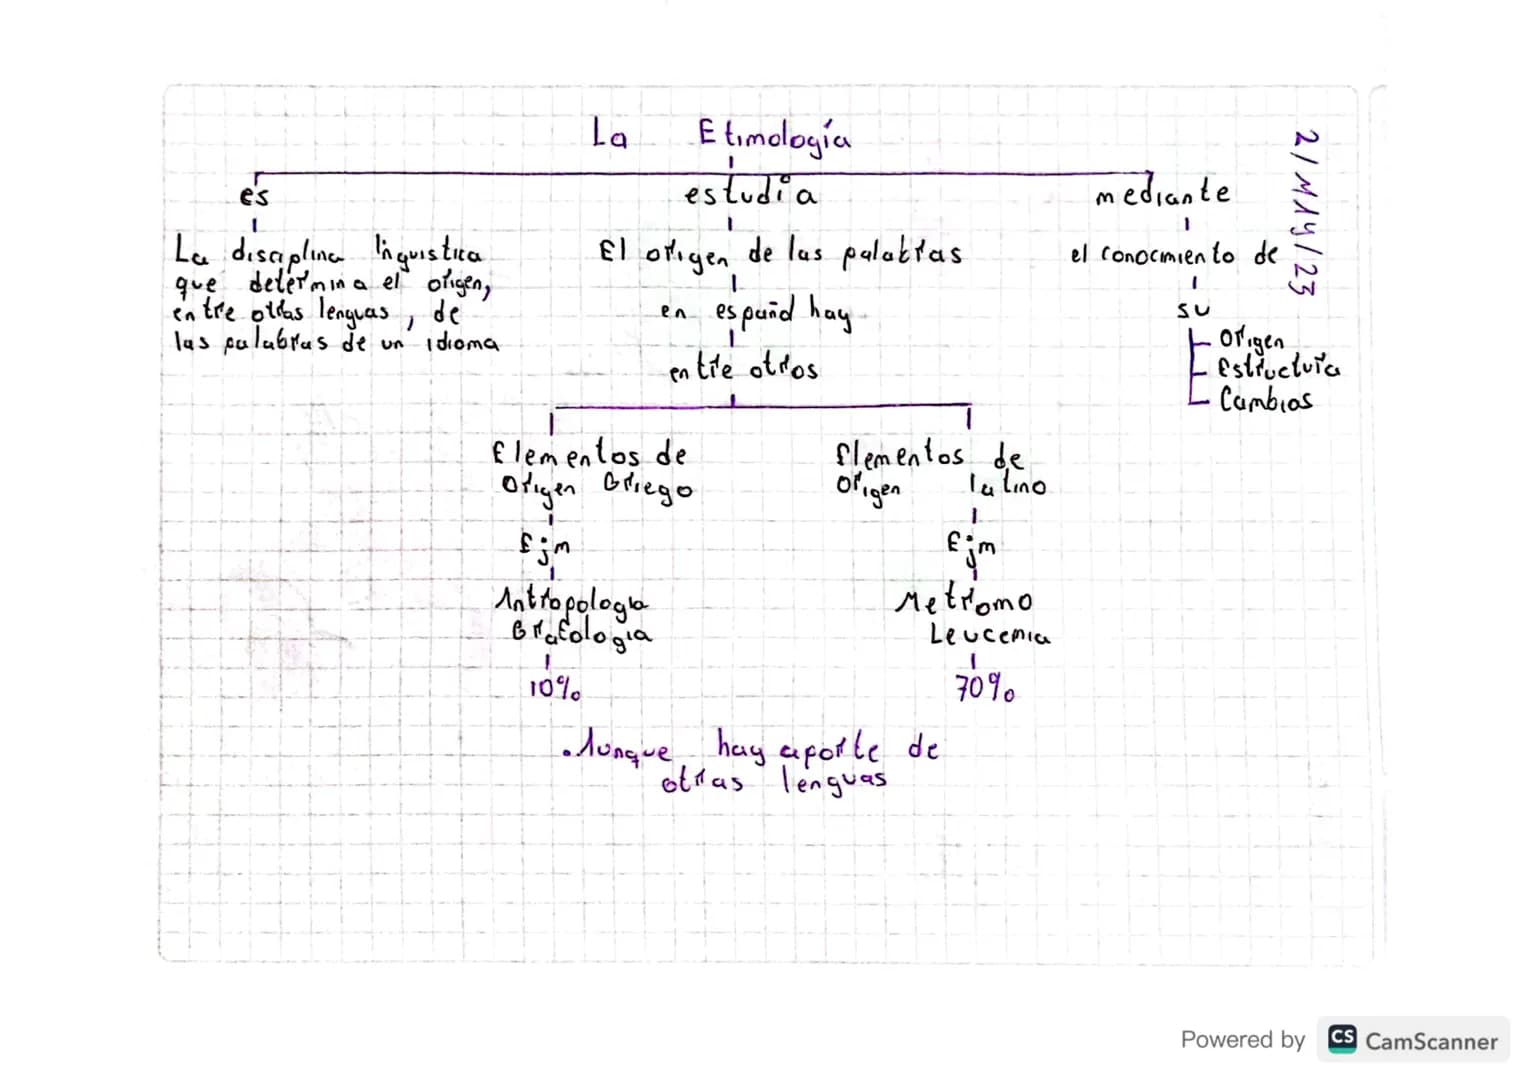 La Etimología
2/MAY/23
es
La disciplina linguistica
que determina el origen,
entre otras lenguas, de
las palabras de un idioma
estudia
El origen de las palabras
en españd hay
entre otros
Elementos de
Origen Griego
Ejm
Antropologia
Grafologia
10%
Elementos de
Origen latino
Ejm
Metromo
Leucemia
70%
.Aunque hay aporte de
otras lenguas
mediante
el conocimiento de
su
Origen
Estructura
Cambios
Powered by CS CamScanner